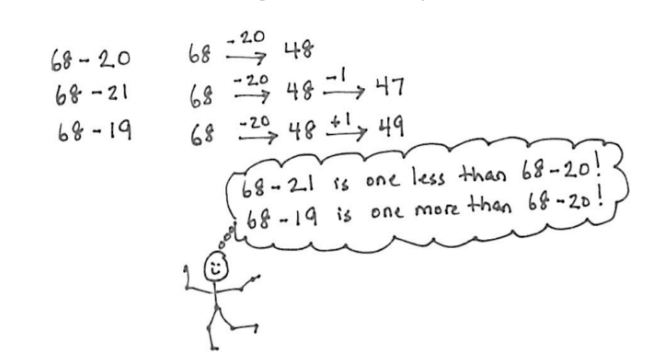 68 - 20 68 -20→ 48
68 - 21 68 -20→ 48 -1→ 47
68 - 19 68 -20→ 48 +1→ 49
68 - 21 is one less than 68 - 20!
68 - 19 is one more than 68 - 20!